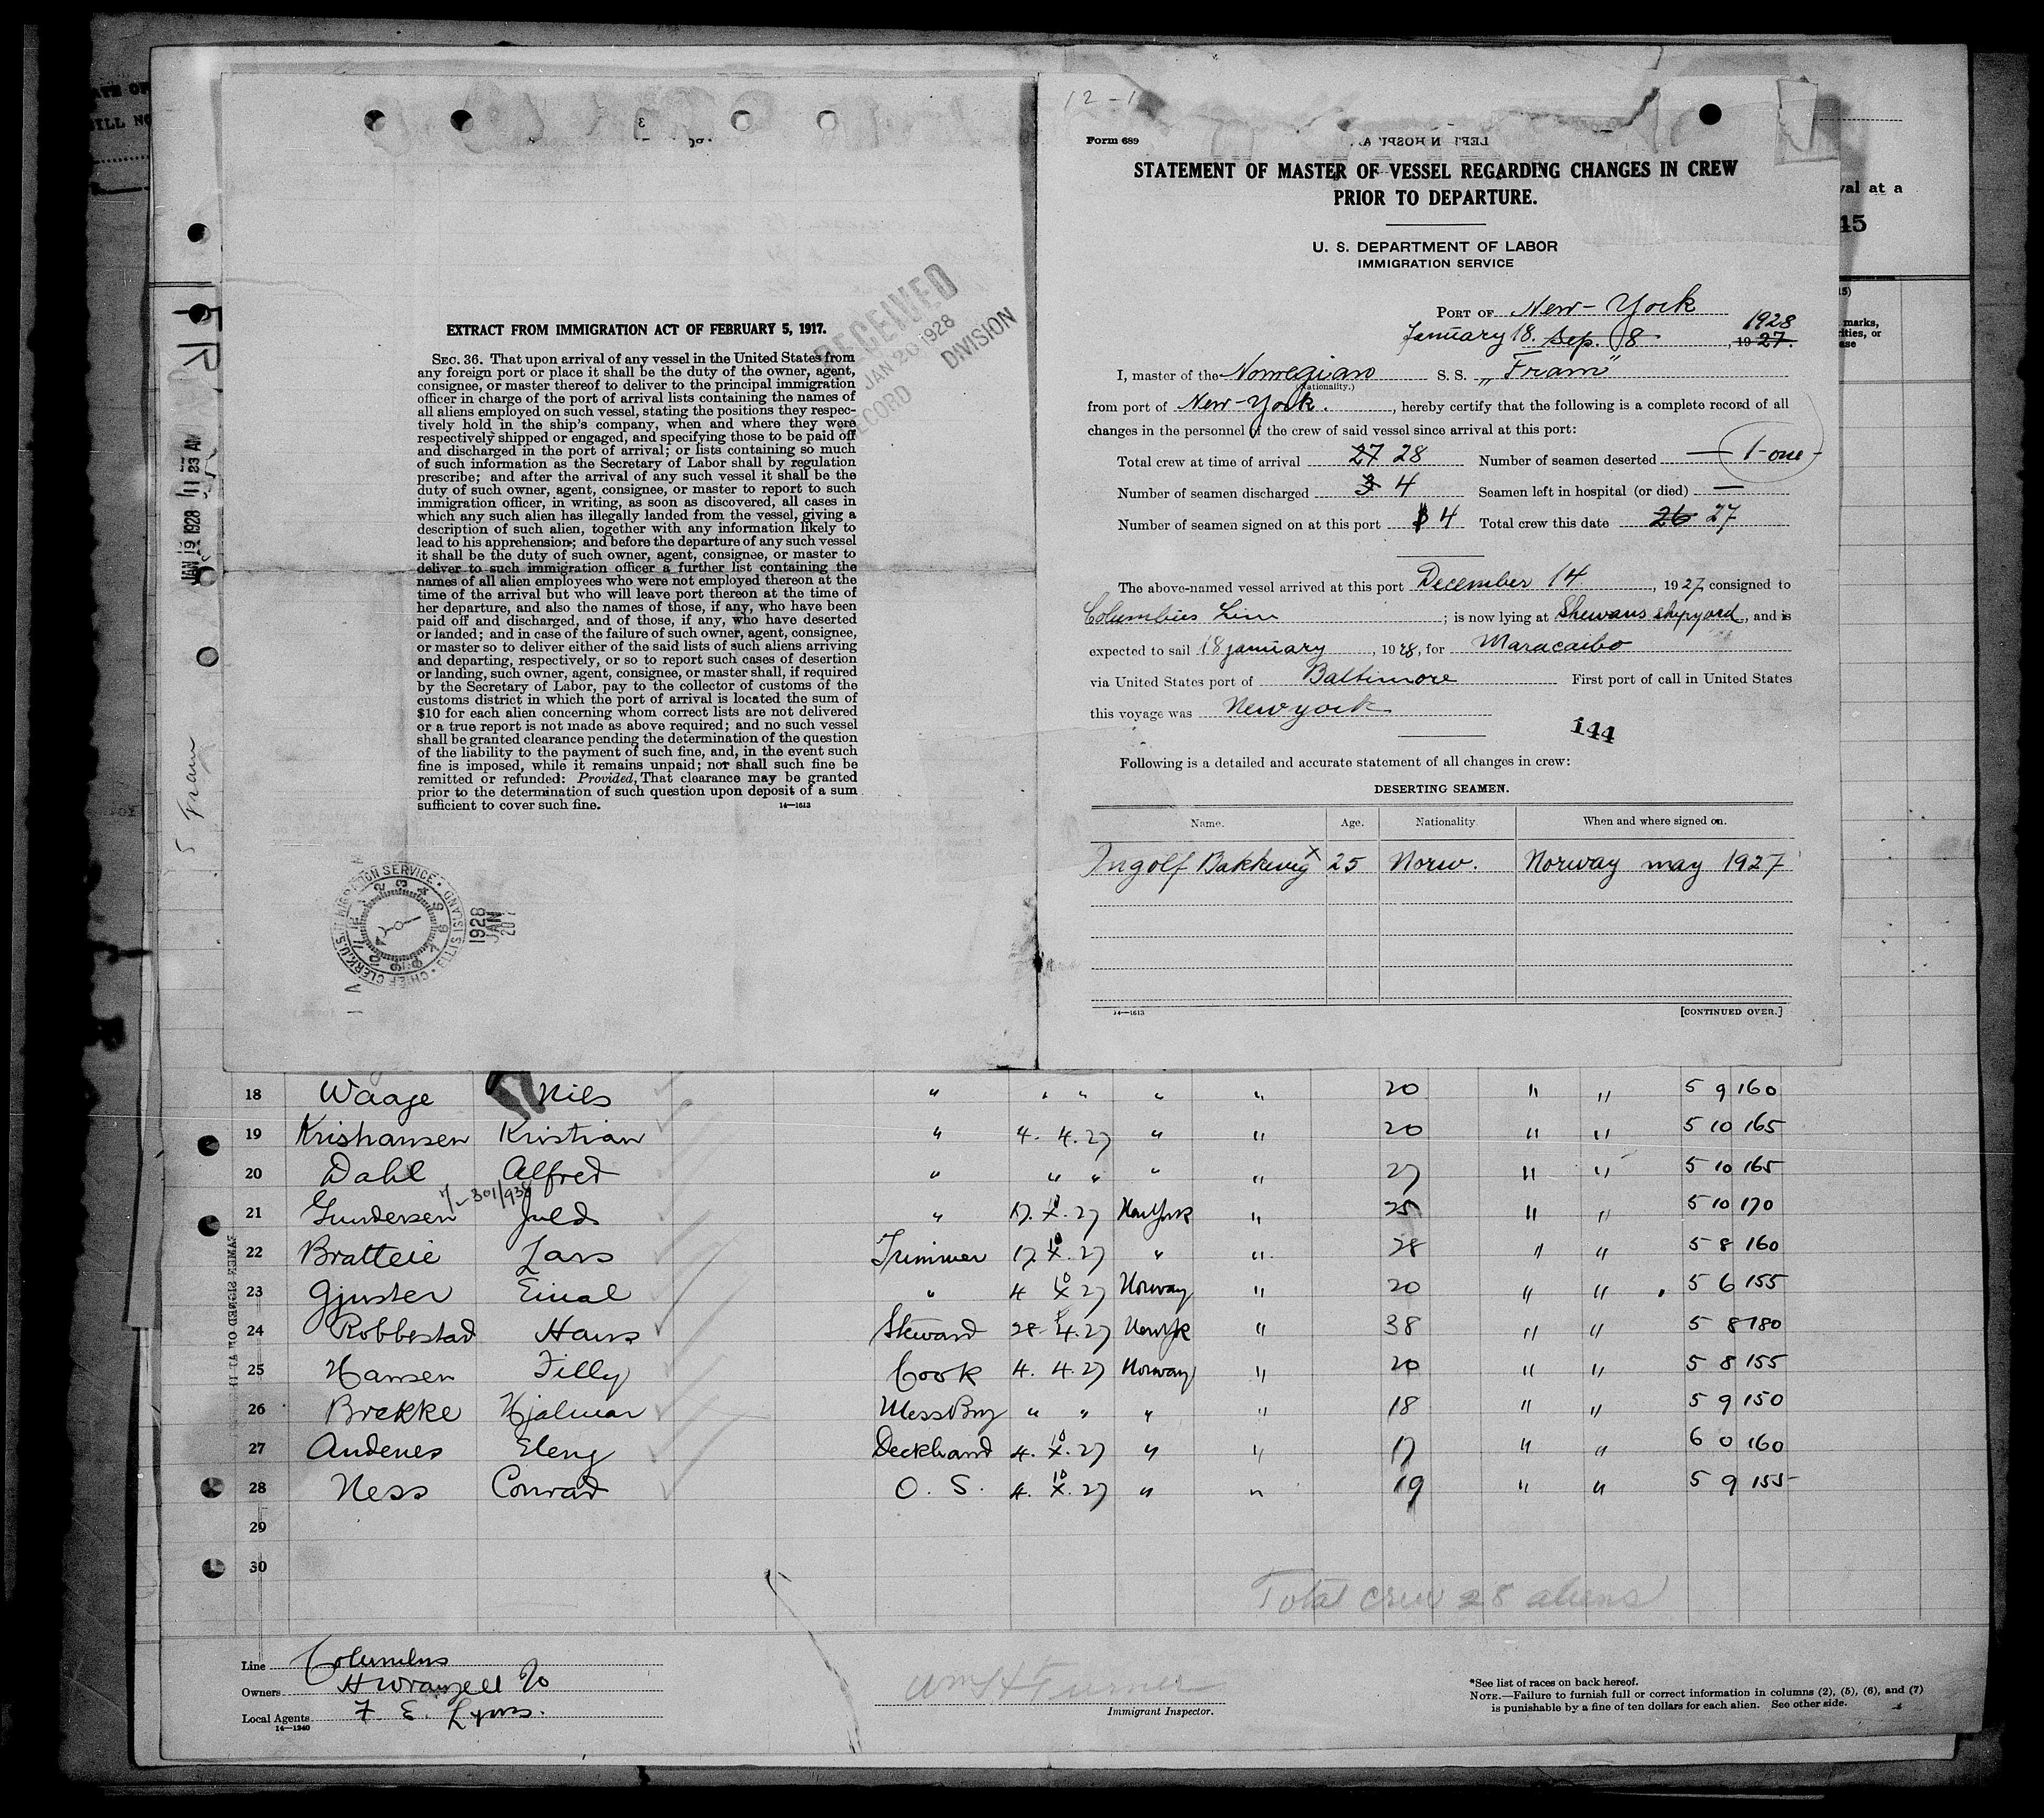 EXTRACT FROM IMMIGRATION ACT OF FEBRUARY 5, 1917.
SEC. 36. That upon arrival of any vessel in the United States from
any foreign port or place it shall be the duty of the owner, agent,
consignee, or master thereof to deliver to the principal immigration
officer in charge of the port of arrival lists containing the names of
all aliens employed on such vessel, stating the positions they respec-
tively hold in the ship's company, when and where they were
respectively shipped or engaged, and specifying those to be paid off
and discharged in the port of arrival; or lists containing so much
of such information as the Secretary of Labor shall by regulation
prescribe; and after the arrival of any such vessel it shall be the
duty of such owner, agent, consignee, or master to report to such
immigration officer, in writing, as soon as discovered, all cases in
which any such alien has illegally landed from the vessel, giving a
description of such alien, together with any information likely to
lead to his apprehension; and before the departure of any such vessel
it shall be the duty of such owner, agent, consignee, or master to
deliver to such immigration officer a further list containing the
names of all alien employees who were not employed thereon at the
time of the arrival but who will leave port thereon at the time of
her departure, and also the names of those, if any, who have been
paid off and discharged, and of those, if any, who have deserted
or landed; and in case of the failure of such owner, agent, consignee,
or master so to deliver either of the said lists of such aliens arriving
and departing, respectively, or so to report such cases of desertion
or landing, such owner, agent, consignee, or master shall, if required
by the Secretary of Labor, pay to the collector of customs of the
customs district in which the port of arrival is located the sum of
$10 for each alien concerning whom correct lists are not delivered
or a true report is not made as above required; and no such vessel
shall be granted clearance pending the determination of the question
of the liability to the payment of such fine, and, in the event such
fine is imposed, while it remains unpaid; nor shall such fine be
remitted or refunded: Provided, That clearance may be granted
prior to the determination of such question upon deposit of a sum
sufficient to cover such fine. 14—1613
RECEIVED
JAN 20 1928
RECORD DIVISION
JAN 19 1928 11 23 AM
Fram
CHIEF CLERK U.S. IMMIGRATION SERVICE • ELLIS ISLAND •
1928
JAN
20
12-1
Form 689
STATEMENT OF MASTER OF VESSEL REGARDING CHANGES IN CREW
PRIOR TO DEPARTURE.
U. S. DEPARTMENT OF LABOR
IMMIGRATION SERVICE
PORT OF New-York
January 18. Sep. 8 1928, 1927.
I, master of the Norwegian S. S. „Fram"
(Nationality.)
from port of New-York., hereby certify that the following is a complete record of all
changes in the personnel of the crew of said vessel since arrival at this port:
Total crew at time of arrival 27 28 Number of seamen deserted — 1-one-
Number of seamen discharged 3 4 Seamen left in hospital (or died) —
Number of seamen signed on at this port 4 Total crew this date 26 27
The above-named vessel arrived at this port December 14, 1927, consigned to
Columbus Line; is now lying at Shewans shipyard, and is
expected to sail 18 january, 1928, for Maracaibo
via United States port of Baltimore First port of call in United States
this voyage was New york
144
Following is a detailed and accurate statement of all changes in crew:
DESERTING SEAMEN.
Name. Age. Nationality. When and where signed on.
Ingolf Bakkevig x 25 Norw. Norway may 1927
14—1613 [CONTINUED OVER.]
18 Waage Nils " " " " " 20 " " 5 9 160
19 Kristiansen Kristian " 4. 4. 27 " " 20 " " 5 10 165
20 Dahl Alfred " " " " " 27 " " 5 10 165
7-301/938
21 Gundersen " 17. 10 X. 27 New York " 25 " " 5 10 170
22 Bratteie Lars Trimmer 17. 10 X. 27 " " 28 " " 5 8 160
23 Gjuster Einal " 4 10 X 27 Norway " 20 " " 5 6 155
24 Robbestad Hans Steward 28. 4. 27 New Yk " 38 " " 5 8 180
25 Hansen Tilly Cook 4. 4. 27 Norway " 20 " " 5 8 155
26 Brekke Hjalmar Mess Boy " " " " 18 " " 5 9 150
27 Andenes Eleng Deckhand 4. 10 X. 27 " " 17 " " 6 0 160
28 Ness Conrad O. S. 4. 10 X. 27 " " 19 " " 5 9 155
29
30
Total crew 28 aliens
Line Columbus
Owners H Wrangell Co
Local Agents F. E. Lyons.
14—1240
Wm H Turner
Immigrant Inspector.
*See list of races on back hereof.
NOTE.—Failure to furnish full or correct information in columns (2), (5), (6), and (7)
is punishable by a fine of ten dollars for each alien. See other side.
val at a
marks,